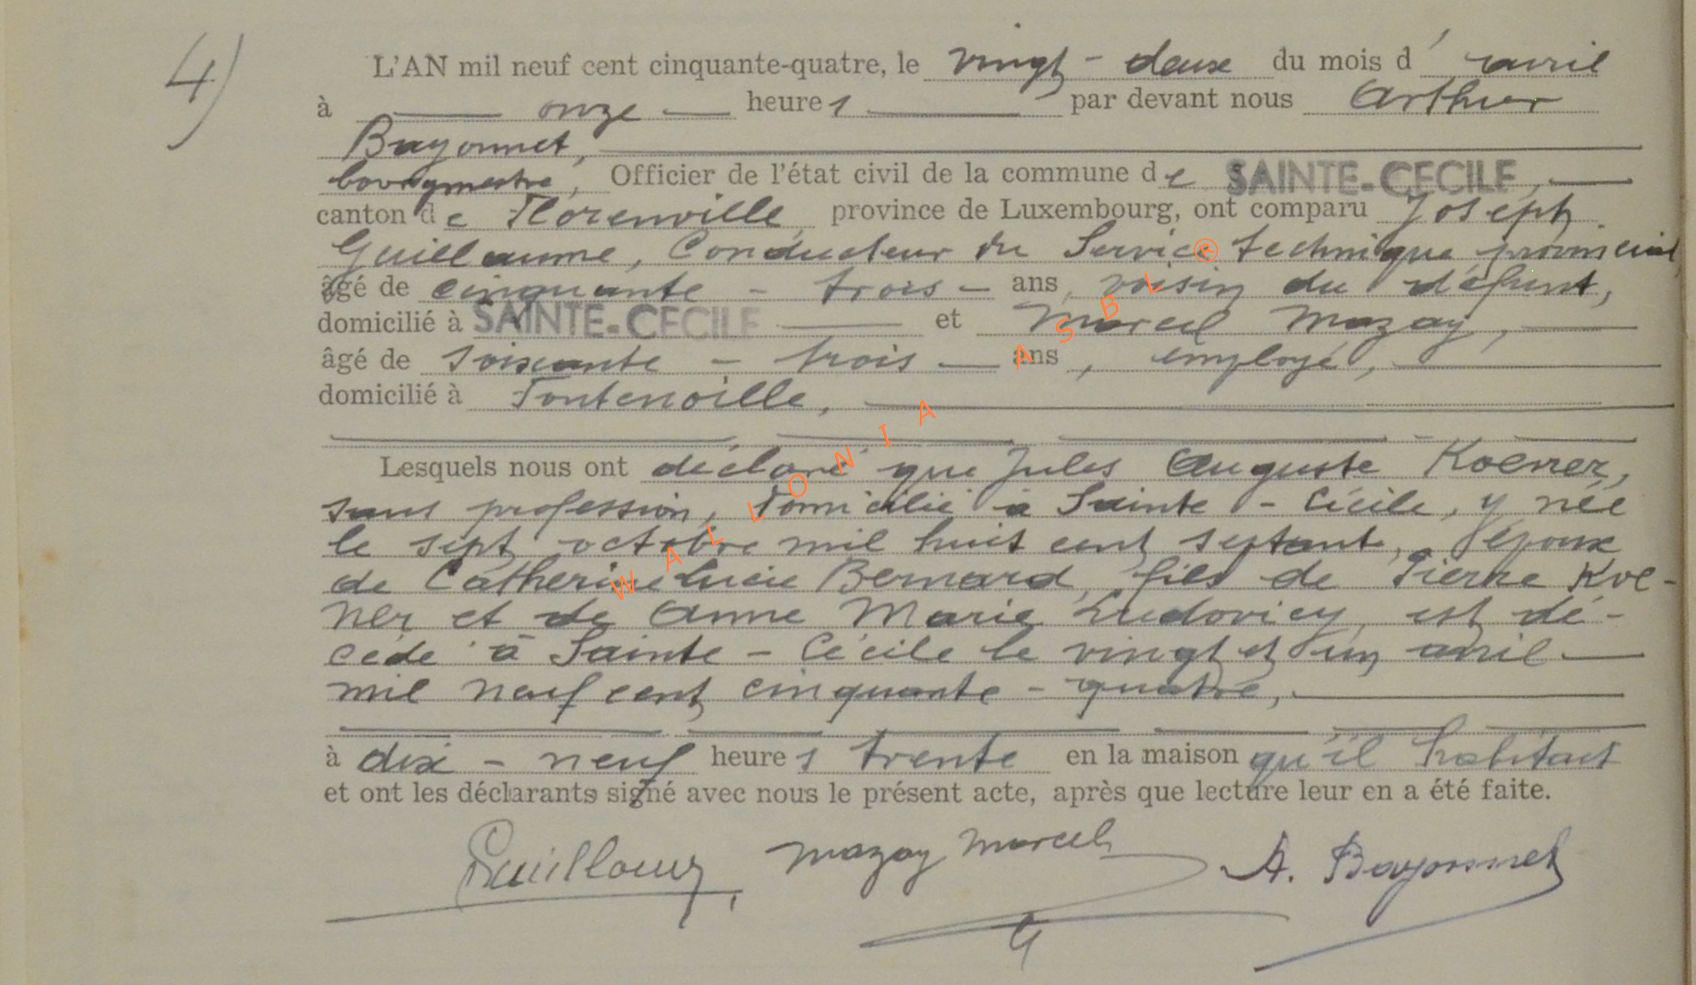 4)
L'AN mil neuf cent cinquante-quatre, le vingt - deux du mois d' avril
à onze heures par devant nous Arthur
Bayonnet,
bourgmestre, Officier de l'état civil de la commune de SAINTE-CECILE,
canton de Florenville province de Luxembourg, ont comparu Joseph
Guillaume, Conducteur du Service technique provincial
âgé de cinquante - trois - ans, voisin du défunt,
domicilié à SAINTE-CECILE et Marcel Mazay,
âgé de soixante - trois - ans, employé,
domicilié à Fontenoille,
Lesquels nous ont déclaré que Jules Auguste Koener,
sans profession, domicilié à Sainte - Cécile, y née
le sept octobre mil huit cent septante, époux
de Catherine Lucie Bernard, fils de Pierre Koe-
ner et de Anne Marie Ludovicy, est dé-
cédé à Sainte - Cécile le vingt et un avril
mil neuf cent cinquante - quatre,
à dix - neuf heures trente en la maison qu'il habitait
et ont les déclarants signé avec nous le présent acte, après que lecture leur en a été faite.
Guillaume, Mazay Marcel A. Bayonnet
WALLONIA ASBL ®